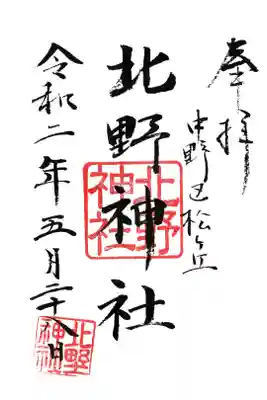 奉拝
中野区松ヶ丘
北野神社
北野
神社
令和二年五月二十八日
北野
神社